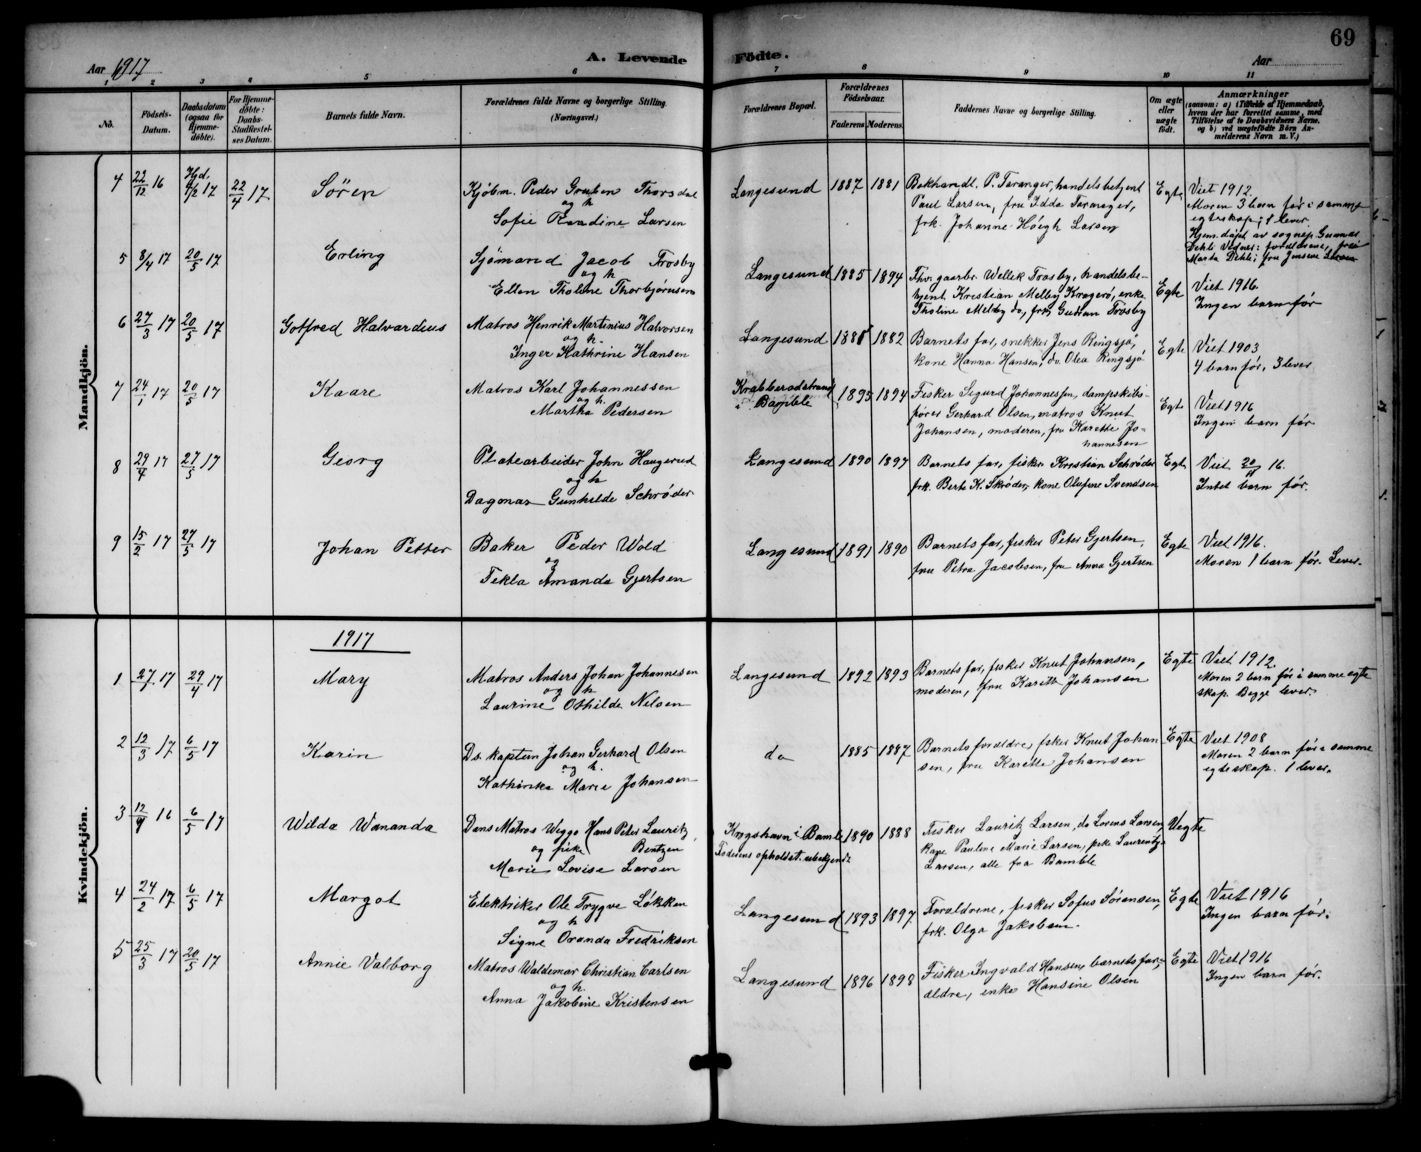 69
Aar 1917
A. Levende Fødte.
Aar
1 2 3 4 5 6 7 8 9 10 11
No.
Fødsels-Datum.
Daabsdatum (ogsaa for Hjemme-døbte).
For Hjemme-døbte: Daabs-Stadfæstel-ses Datum.
Barnets fulde Navn.
Forældrenes fulde Navne og borgerlige Stilling. (Næringsvei.)
Forældrenes Bopæl.
Forældrenes Fødselsaar.
Faderens. Moderens.
Faddernes Navne og borgerlig Stilling.
Om ægte eller uægte født.
Anmærkninger
(saasom: a) i Tilfælde af Hjemmedaab, hvem der har forrettet samme, med Tilføielse af to Daabsvidners Navne, og b) ved uægtefødte Børn An-melderens Navn m. V.)
Mandkjøn.
4 22/12 16 Hjd. 1/2 17 22/4 17 Søren
Kjøbm. Peder Gruben Thorsdal
og h
Sofie Randine Larsen
Langesund 1887 1881
Bokhandl. P. Taranger, handelsbetjent
Paul Larsen, fru Idda Taranger,
frk. Johanne Høegh Larsen
Egte
Viet 1912.
Moren 3 barn før i samme
egteskap; 1 lever.
Hjem.døpt av sognep. Gunnar
Dehli Vidner: forældrene, frue
Marta Dehli; fru Jensine Larsen
5 8/4 17 20/5 17 Erling
Sjømand Jacob Trosby
og h
Ellen Tholine Thorbjørnsen
Langesund 1885 1894
Thv. gaarbr. Wellek Trosby, handelsbe-
tjent Kristian Melby Kragerø, enke
Tholine Melby do, frk. Gudrun Trosby
Egte
Viet 1916.
Ingen barn før
6 27/3 17 20/5 17 Gotfred Halvardius
Matros Henrik Martinius Halvorsen
og h.
Inger Kathrine Hansen
Langesund 1881 1882
Barnets far, snekker Jens Ringsjø,
kone Hanna Hansen, do Olea Ringsjø
Egte
Viet 1903
4 barn før, 3 lever
7 24/1 17 20/5 17 Kaare
Matros Karl Johannessen
og h.
Martha Pedersen
Krabberødstrand
i Bamble
1895 1894
Fisker Sigurd Johannessen, dampskibs-
fører Gerhard Olsen, matros Knut
Johansen, moderen, fru Karette Jo-
hannesen
Egte
Viet 1916
Ingen barn før
8 29/4 17 27/5 17 Georg
Platearbeider John Haugerud
og h
Dagonar Gunhilde Schrøder
Langesund 1890 1897
Barnets far, fisker Kristian Schrøder
frk. Berte K. Skrøder, kone Olufine Svendsen
Egte
Viet 20/11 16.
Intet barn før.
9 15/2 17 27/5 17 Johan Petter
Baker Peder Wold
og
Tekla Amanda Gjertsen
Langesund 1891 1890
Barnets far, fisker Peter Gjertsen,
fru Petra Jacobsen, fru Anna Gjertsen
Egte
Viet 1916.
Moren 1 barn før. Lever.
Kvindekjøn.
1917
1 27. 17 29/4 17 Mary
Matros Anders Johan Johannesen
og h
Laurine Othilde Nilsen
Langesund 1892 1893
Barnets far, fisker Knut Johansen,
moderen, fru Karette Johansen
Egte
Viet 1912.
Moren 2 barn før i samme egte
skap. Begge lever.
2 12/3 17 6/5 17 Karin
Ds. kaptein Johan Gerhard Olsen
og h.
Kathinka Marie Johansen
do 1885 1887
Barnets forældre, fisker Knut Johan
sen, fru Karette Johansen
Egte
Viet 1908
Moren 2 barn før i samme
egteskap. 1 lever.
3 12/9 16 6/5 17 Wilda Wananda
Dans Matros Weggo Hans Peter Lauritz
og pike Bentzen
Marie Lovise Larsen
Krogshavn i Bamble
Faderens opholdst. ubekjendt
1890 1888
Fisker Lauritz Larsen, do Lorens Larsen,
kone Pauline Marie Larsen, pike Laurentze
Larsen, alle fra Bamble
Uegte
4 24/2 17 6/5 17 Margot
Elektriker Ole Trygve Løkken
og h
Signe Oranda Fredriksen
Langesund 1893 1897
Forældrene, fisker Sofus Sørensen,
frk. Olga Jakobsen.
Egte
Viet 1916
Ingen barn før.
5 25/3 17 20/5 17 Annie Valborg
Matros Waldemar Christian Carlsen
og h.
Anna Jakobine Kristensen
Langesund 1896 1898
Fisker Ingvald Hansen, barnets for-
ældre, enke Hansine Olsen
Egte
Viet 1916
Ingen barn før.